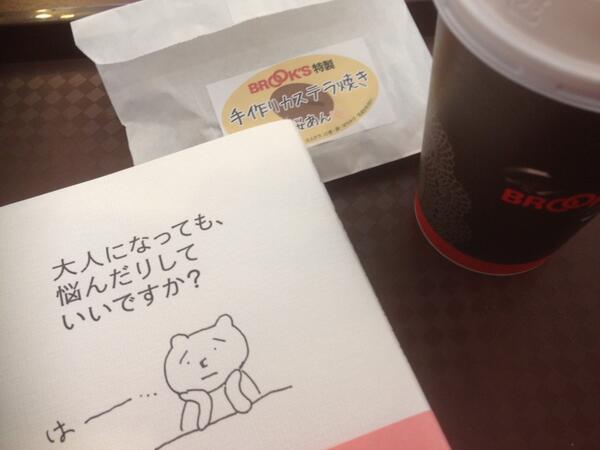 BROOK'S 特製
手作りカステラ焼き
桜あん
BROO
大人になっても、
悩んだりして
いいですか?
はーー…